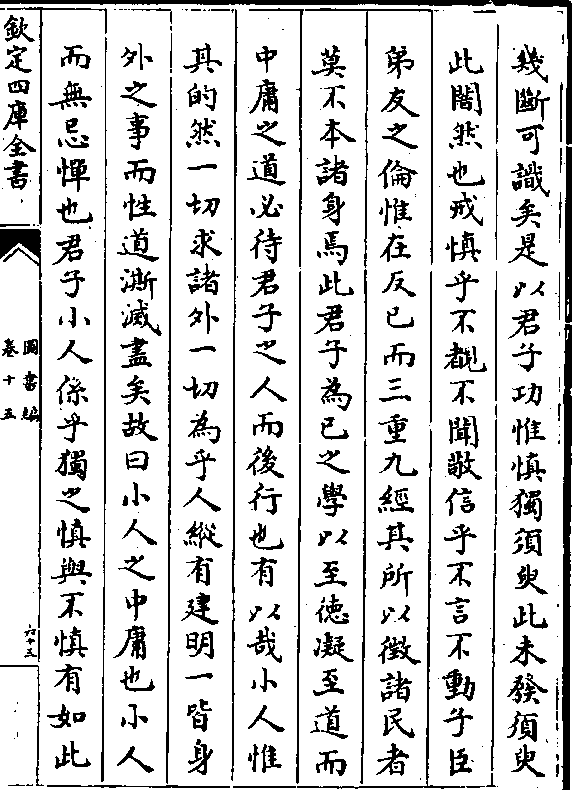 幾斷可識矣是以君子功惟慎獨須臾此未發須臾
此闇然也戒慎乎不覩不聞敬信乎不言不動子臣
弟友之倫惟在反已而三重九經其所以徵諸民者
莫不本諸身焉此君子為已之學以至徳凝至道而
中庸之道必待君子之人而後行也有以哉小人惟
其的然一切求諸外一切為乎人縱有建明一皆身
外之事而性道澌滅盡矣故曰小人之中庸也小人
而無忌憚也君子小人係乎獨之慎與不慎有如此
欽定四庫全書
圖書編
卷十五
六十五